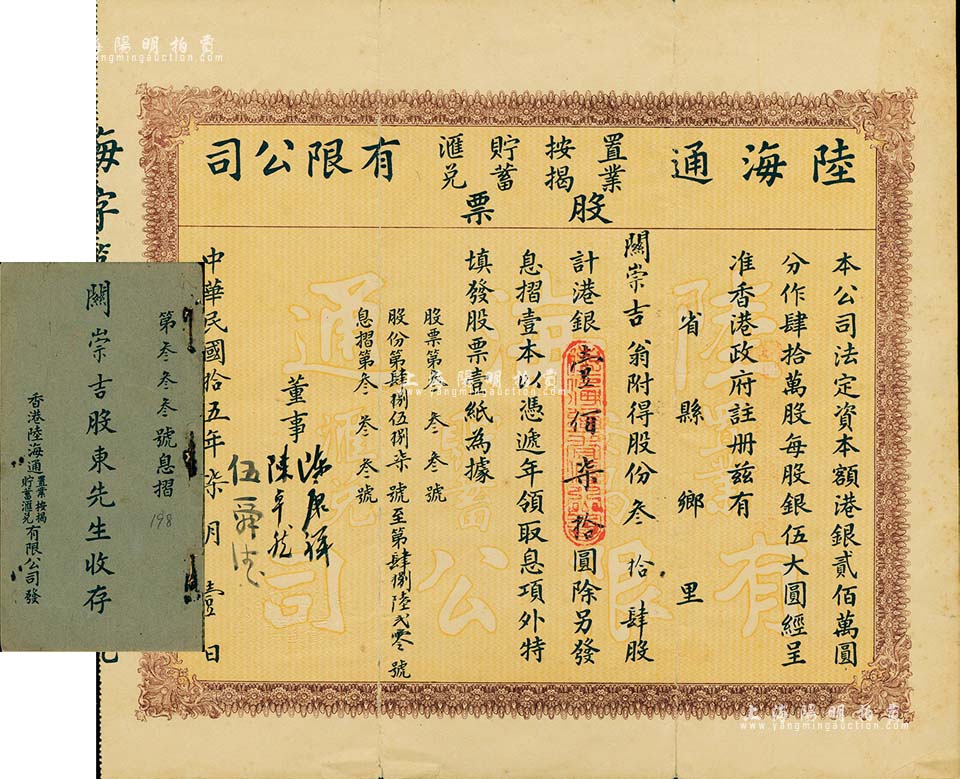 陸海通置業按揭貯蓄滙兌有限公司
股票
本公司法定資本額港銀貳佰萬圓
分作肆拾萬股每股銀伍大圓經呈
准香港政府註册兹有
省 縣 鄉 里
關崇吉翁附得股份叁拾肆股
計港銀壹佰柒拾圓除另發
息摺壹本以憑遞年領取息項外特
填發股票壹紙為據
股票第叁叁叁號
股份第肆捌伍捌柒號至第肆捌陸弍零號
息摺第叁叁叁號
董事
中華民國拾五年柒月壹日
海字第
第叁叁叁號息摺
198
關崇吉股東先生收存
香港陸海通置業按揭貯蓄滙兌有限公司發
陸海通
置業
滙兌
有限公司
上海陽明拍賣
www.yangmingauction.com
上海陽明拍賣
www.yangmingauction.com
上海陽明拍賣
www.yangmingauction.com